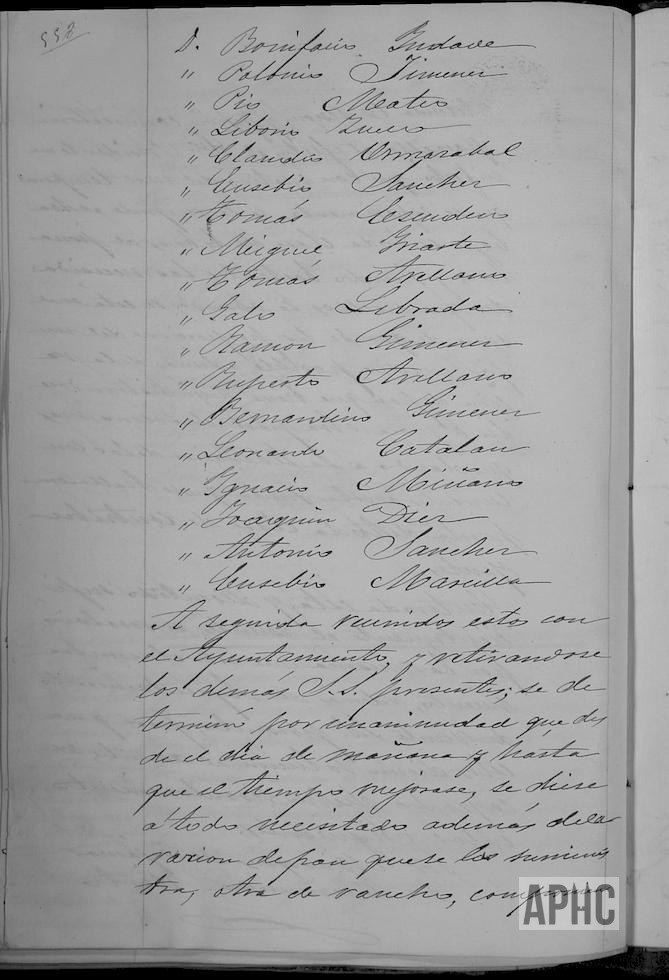 553
D. Bonifacio Indave
" Polonio Jimenez
" Pio Mateo
" Liborio
" Claudio Ormazabal
" Eusebio Sanchez
" Tomás Escudero
" Miguel Iriarte
" Tomás Arellano
" Galo Librada
" Ramon Gimenez
" Ruperto Arellano
" Bernardino Gimenez
" Leonardo Catalan
" Ignacio Miñano
" Joaquin Diez
" Antonio Sanchez
" Eusebio Marcilla
A seguida reunidos estos con
el Ayuntamiento, y retirandose
los demás S.S. presentes; se de
terminó por unanimidad que des
de el dia de mañana y hasta
que el tiempo mejorase, se diese
á todo necesitado además de la
racion de pan que se les suminis
tra, otra de rancho,
APHC